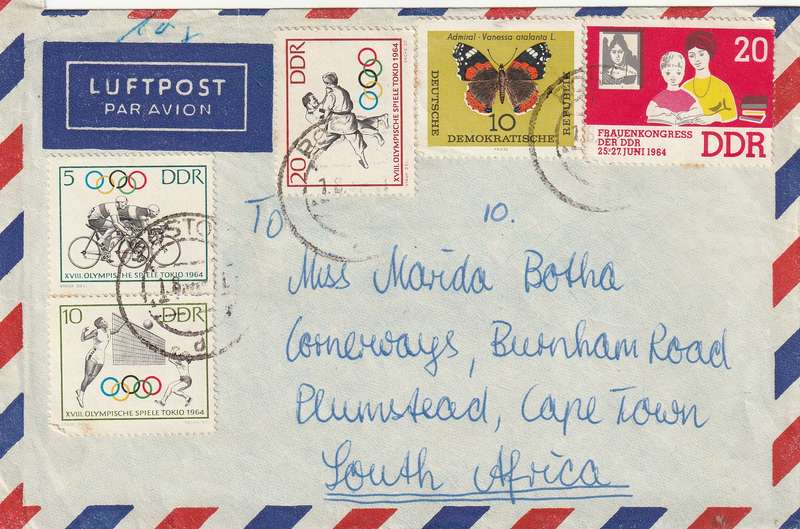 LUFTPOST
PAR AVION
DDR
20
XVIII. OLYMPISCHE SPIELE TOKIO 1964
Admiral - Vanessa atalanta L.
10
DEUTSCHE
DEMOKRATISCHE
REPUBLIK
20
FRAUENKONGRESS
DER DDR
25.-27. JUNI 1964
DDR
5
DDR
XVIII. OLYMPISCHE SPIELE TOKIO 1964
10
DDR
XVIII. OLYMPISCHE SPIELE TOKIO 1964
TO
10.
Miss Marida Botha
Cornerways, Burnham Road
Plumstead, Cape Town
South Africa